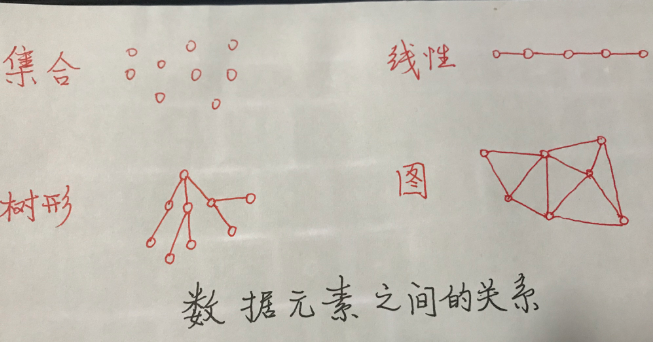 集合
线性
树形
图
数据元素之间的关系